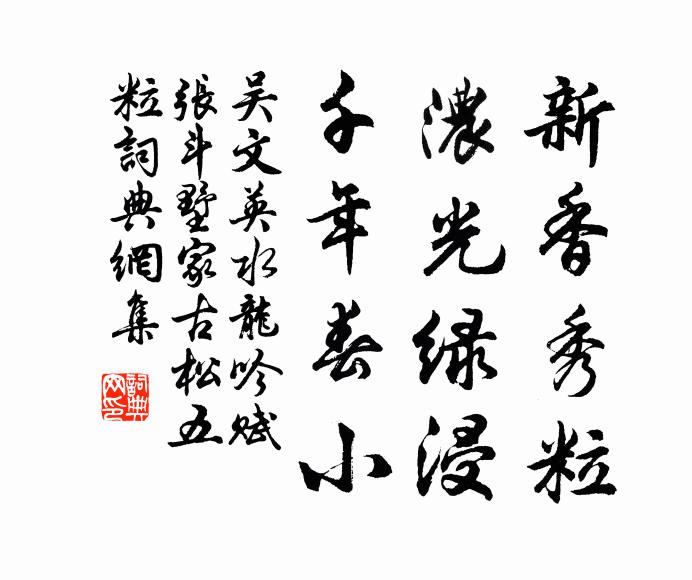 新香秀粒
濃光綠浸
千年春小
吴文英水龍吟賦
張斗墅家古松五
粒詞典網集
詞典
网印